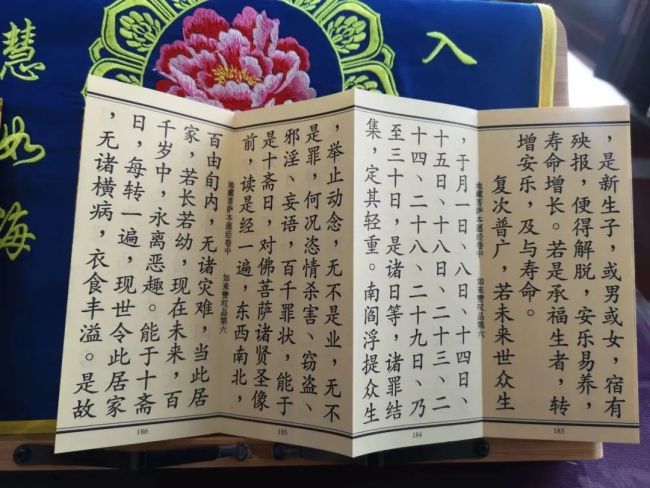 入
慧如海
，是新生子，或男或女，宿有
殃报，便得解脱，安乐易养，
寿命增长。若是承福生者，转
增安乐，及与寿命。
复次普广，若未来世众生
183
地藏菩萨本愿经卷中 如来赞叹品第六
，于月一日、八日、十四日、
十五日、十八日、二十三、二
十四、二十八、二十九日、乃
至三十日，是诸日等，诸罪结
集，定其轻重。南阎浮提众生
184
，举止动念，无不是业，无不
是罪，何况恣情杀害、窃盗、
邪淫、妄语，百千罪状，能于
是十斋日，对佛菩萨诸贤圣像
前，读是经一遍，东西南北，
185
地藏菩萨本愿经卷中 如来赞叹品第六
百由旬内，无诸灾难，当此居
家，若长若幼，现在未来，百
千岁中，永离恶趣。能于十斋
日，每转一遍，现世令此居家
，无诸横病，衣食丰溢。是故
186